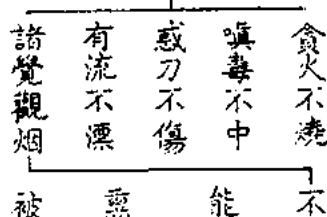 貪火不燒
嗔毒不中
惑刀不傷
有流不漂
諸覺觀烟
不能熏被